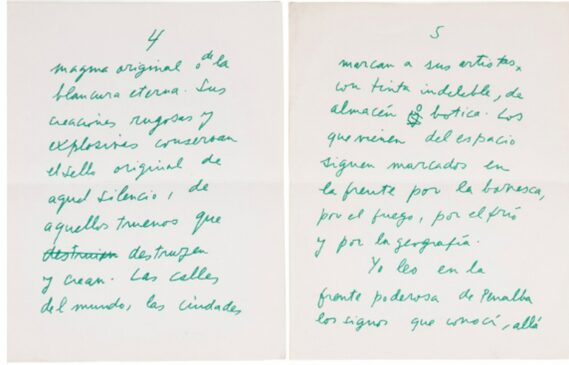 4
magma original o de la
blancura eterna. Sus
creaciones rugosas y
explosivas conservan
el sello original de
aquel silencio, de
aquellos truenos que
destruyen
y crean. Las calles
del mundo, las ciudades
5
marcan a sus artistas,
con tinta indeleble, de
almacén o botica. Los
que vienen del espacio
siguen marcados en
la frente por la
por el fuego, por el frío
y por la geografía.
Yo leo en la
frente poderosa de Penalba
los signos que conocí, allá